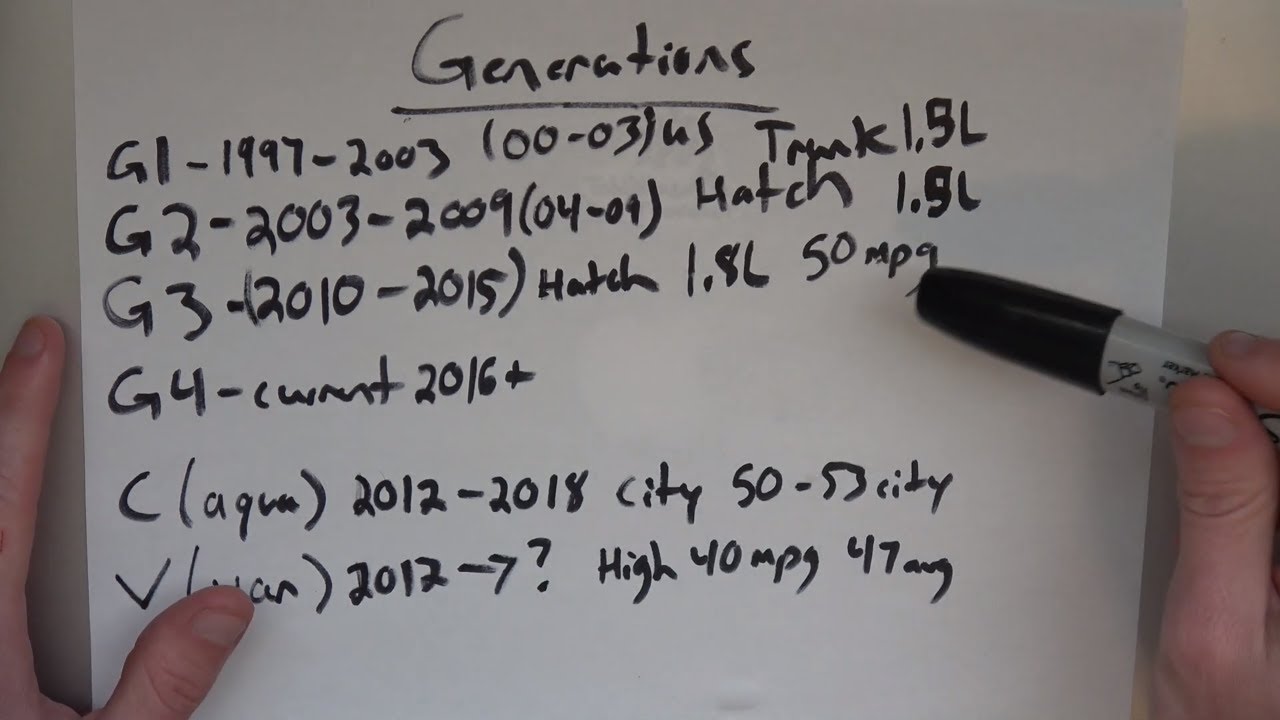 Generations
G1-1997-2003 (00-03)us Trunk 1.5L
G2-2003-2009(04-09) Hatch 1.5L
G3-(2010-2015) Hatch 1.8L 50mpg
G4-current 2016+
C (aqua) 2012-2018 city 50-53city
V ( 2012→? High 40mpg 47avg